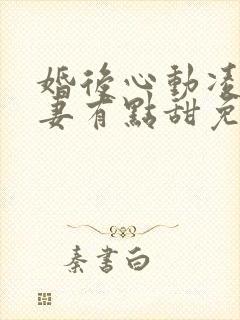 婚後心動凌
妻有點甜免
秦書白